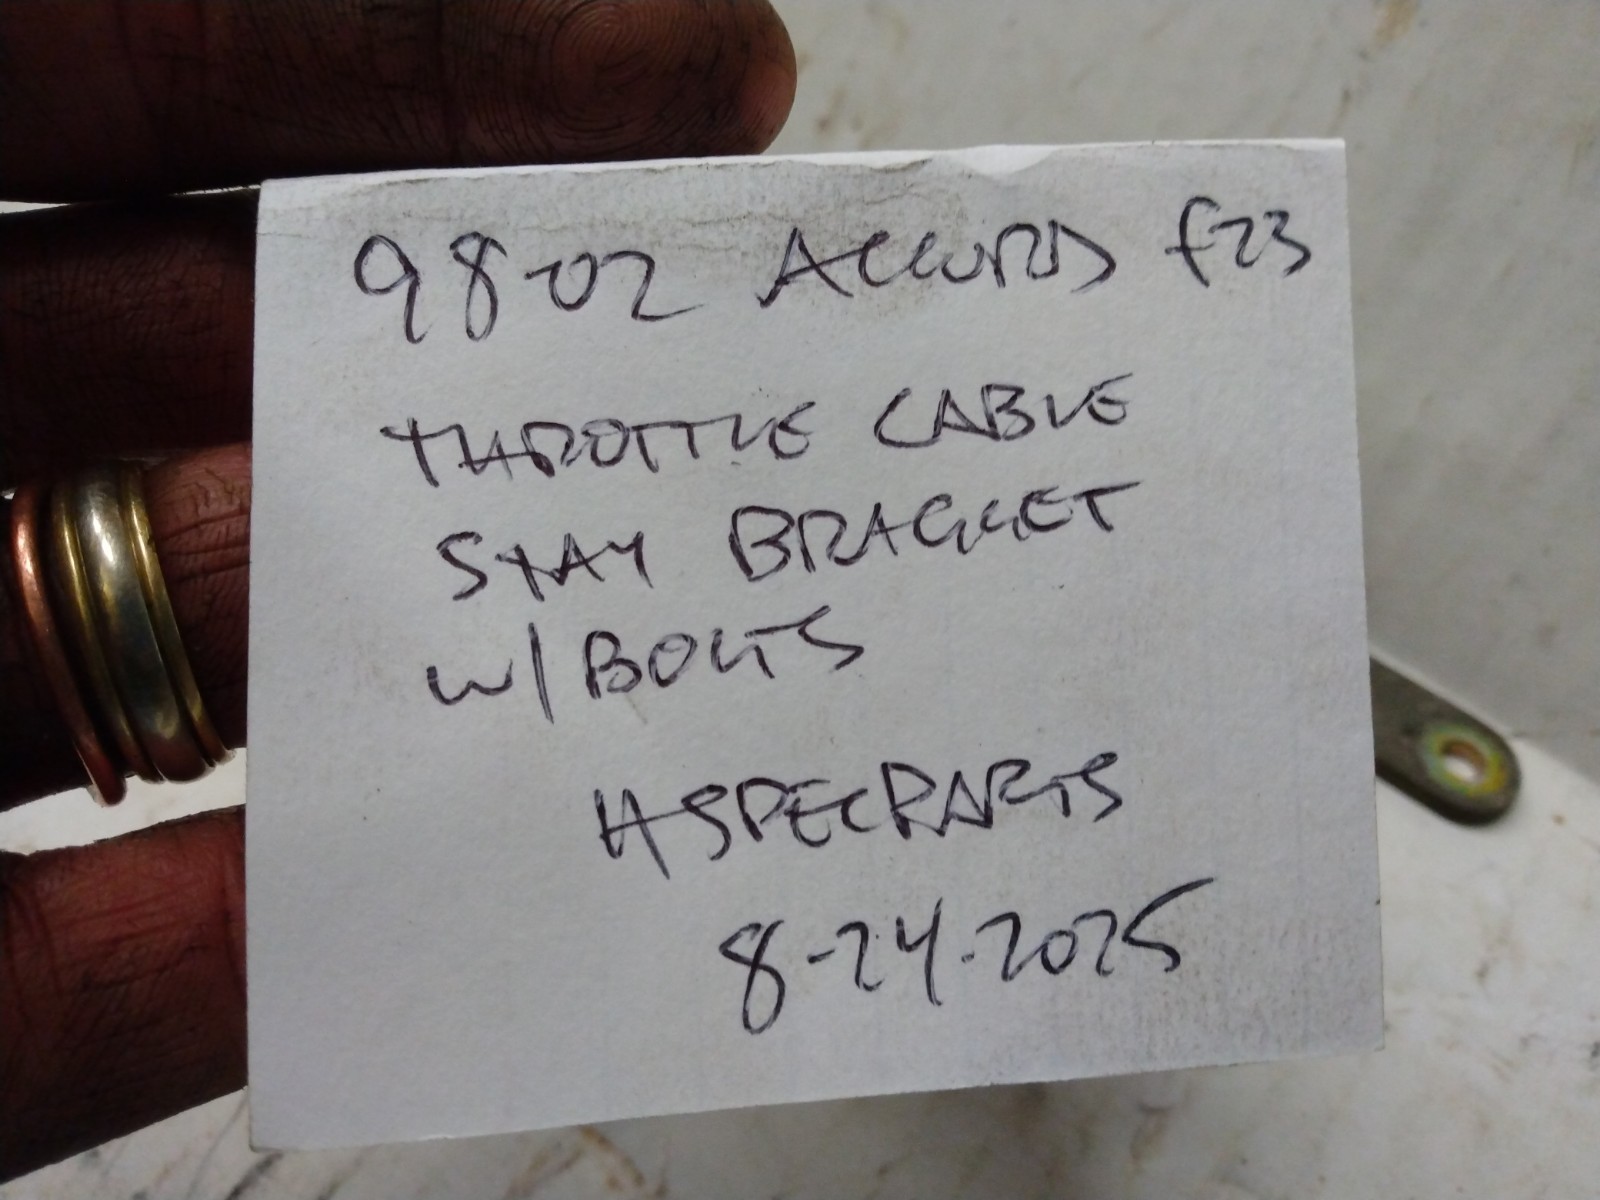 98-02 ACCORD F23
THROTTLE CABLE
STAY BRACKET
W/BOLTS
HSPECPARTS
8-24-2025